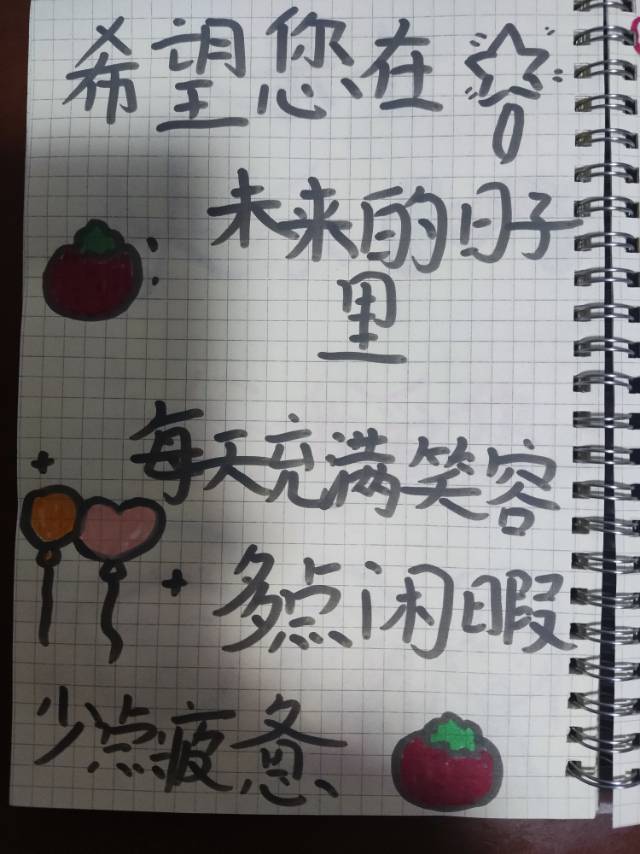 希望您在
未来的日子
里
每天充满笑容
多点闲暇
少点疲惫